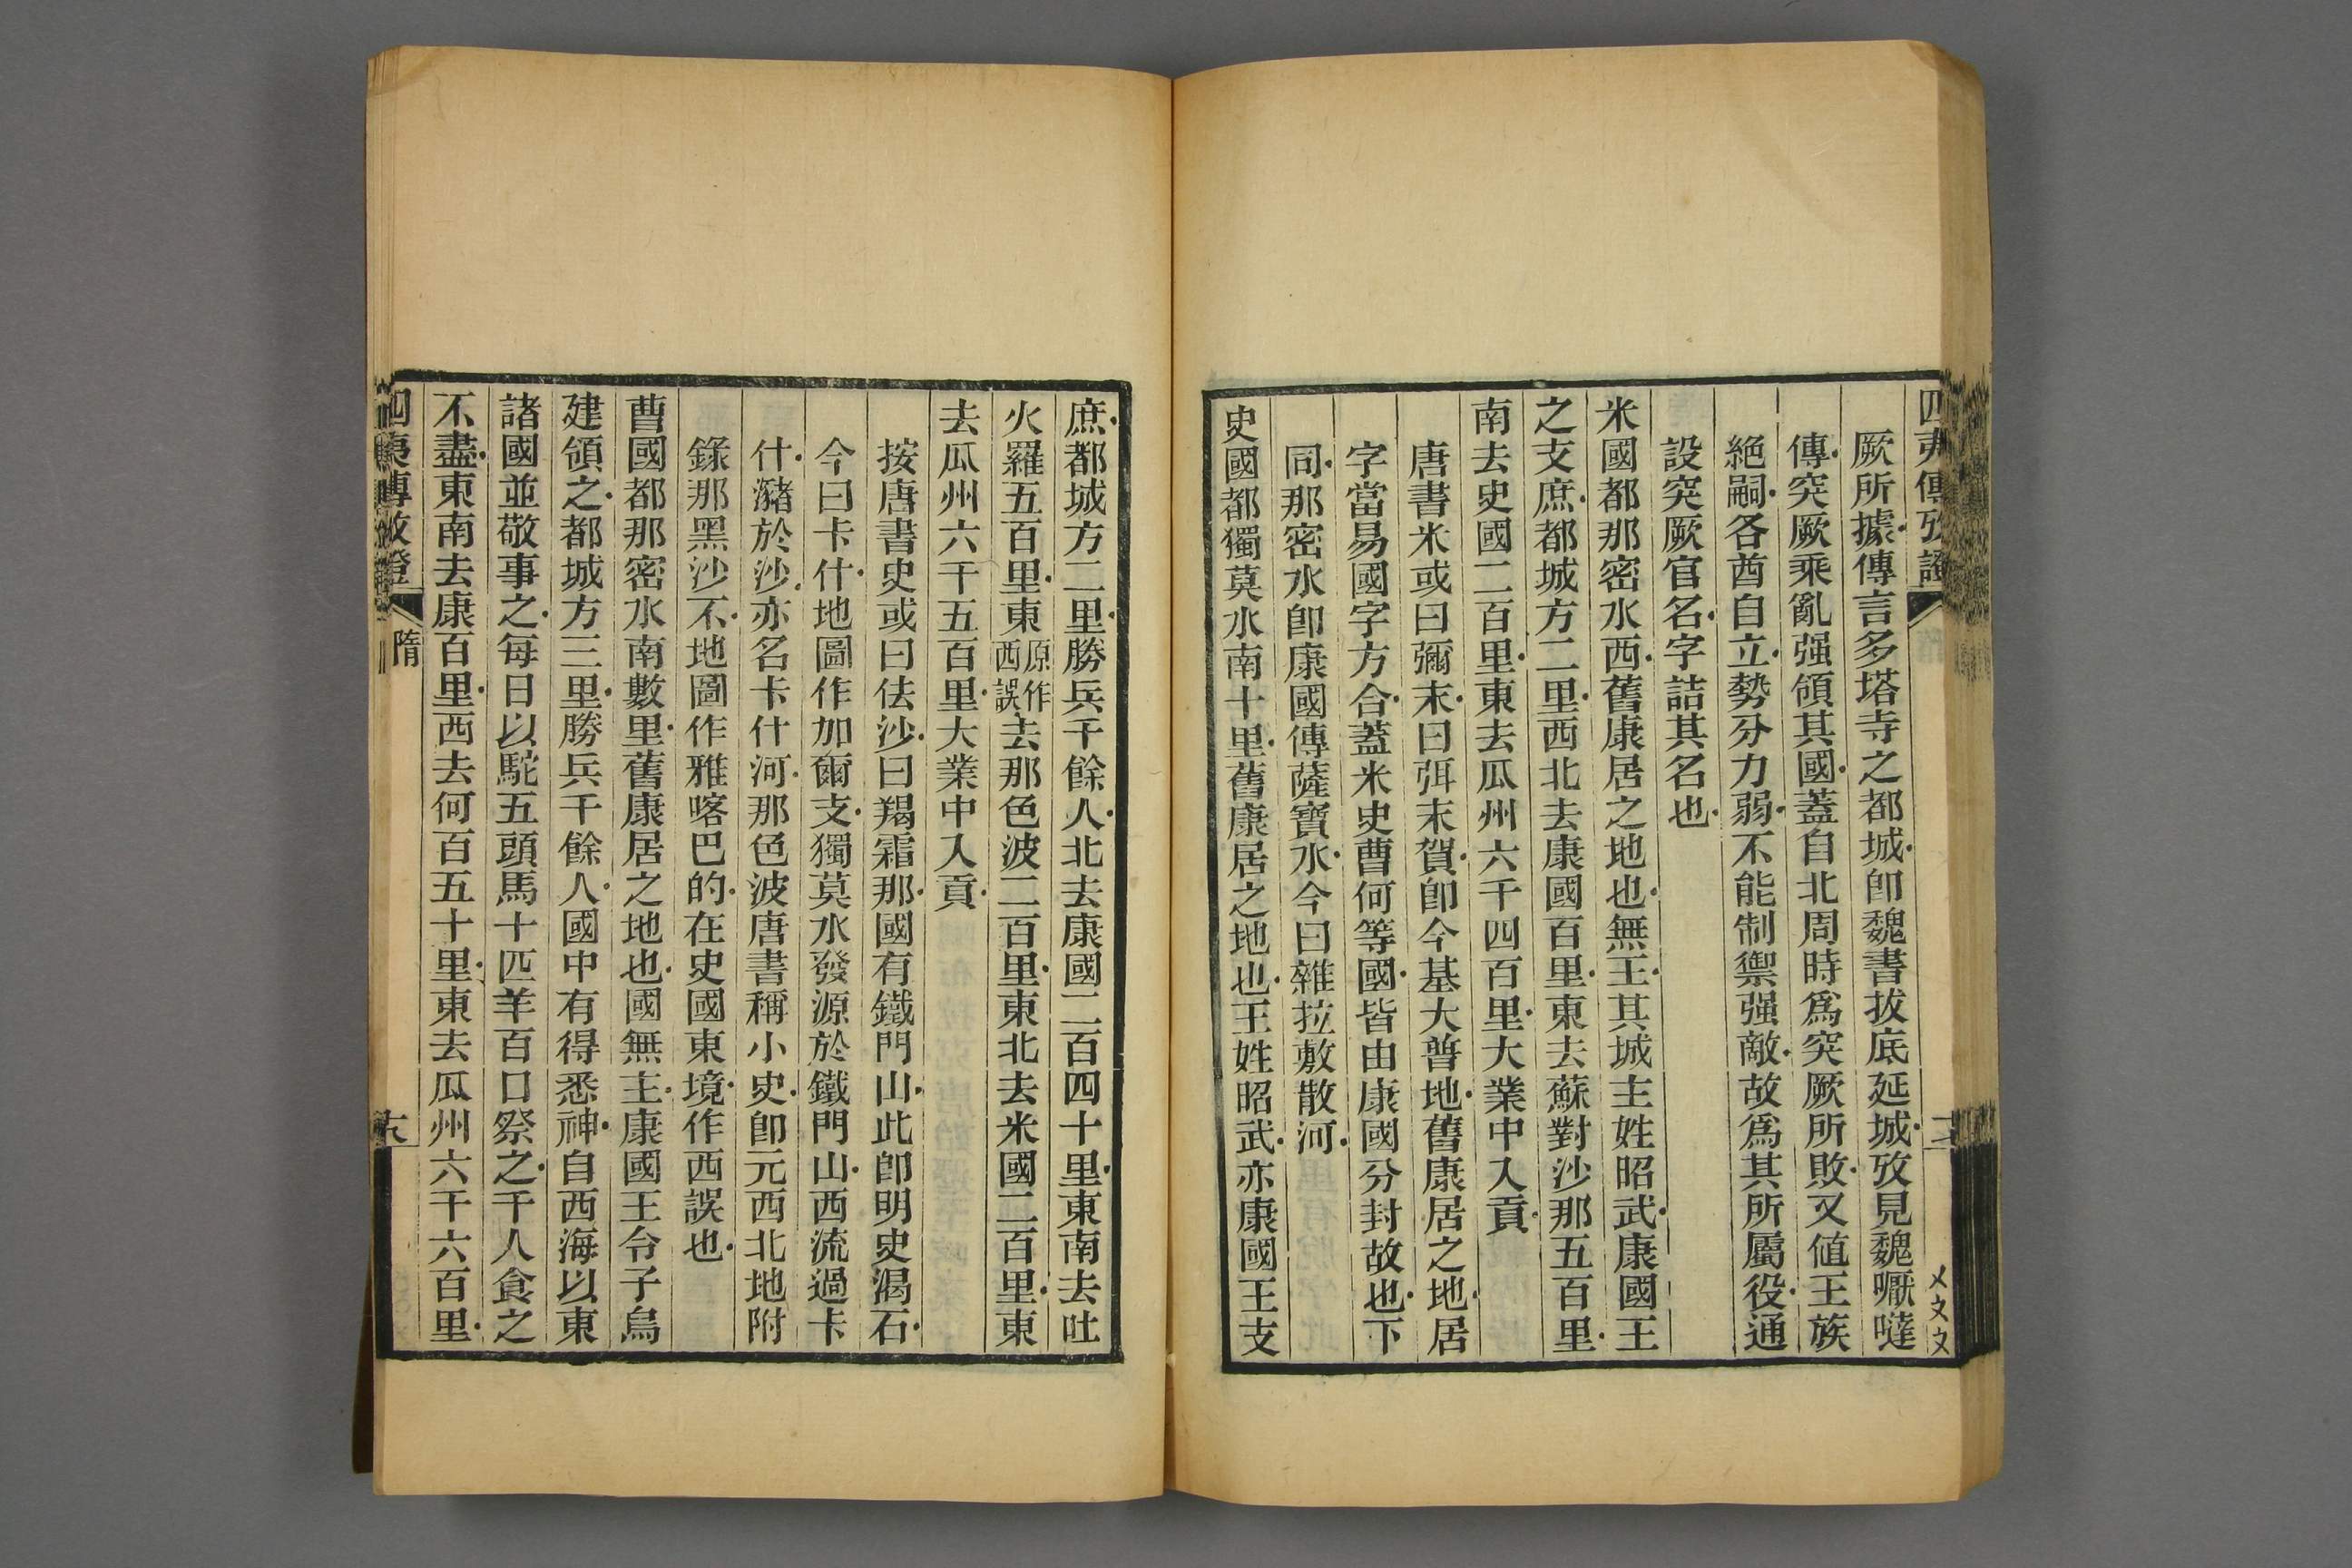 四夷傳攷證
厥所據傳言多塔寺之都城卽魏書拔底延城攷見魏嚈噠
傳突厥乘亂强領其國蓋自北周時爲突厥所敗又値王族
絶嗣各酋自立勢分力弱不能制禦强敵故爲其所屬役通
設突厥官名字詰其名也
米國都那密水西舊康居之地也無王其城主姓昭武康國王
之支庶都城方二里西北去康國百里東去蘇對沙那五百里
南去史國二百里東去瓜州六千四百里大業中入貢
唐書米或曰彌末曰弭末賀卽今基大普地舊康居之地居
字當易國字方合蓋米史曹何等國皆由康國分封故也下
同那密水卽康國傳薩寶水今曰雜拉敷散河
史國都獨莫水南十里舊康居之地也王姓昭武亦康國王支
庶都城方二里勝兵千餘人北去康國二百四十里東南去吐
火羅五百里東原作西誤去那色波二百里東北去米國二百里東
去瓜州六千五百里大業中入貢
按唐書史或曰佉沙曰羯霜那國有鐵門山此卽明史渴石
今曰卡什地圖作加爾支獨莫水發源於鐵門山西流過卡
什瀦於沙亦名卡什河那色波唐書稱小史卽元西北地附
錄那黑沙不地圖作雅喀巴的在史國東境作西誤也
曹國都那密水南數里舊康居之地也國無主康國王令子烏
建領之都城方三里勝兵千餘人國中有得悉神自西海以東
諸國並敬事之每日以駝五頭馬十匹羊百口祭之千人食之
不盡東南去康百里西去何百五十里東去瓜州六千六百里
四夷傳攷證
隋